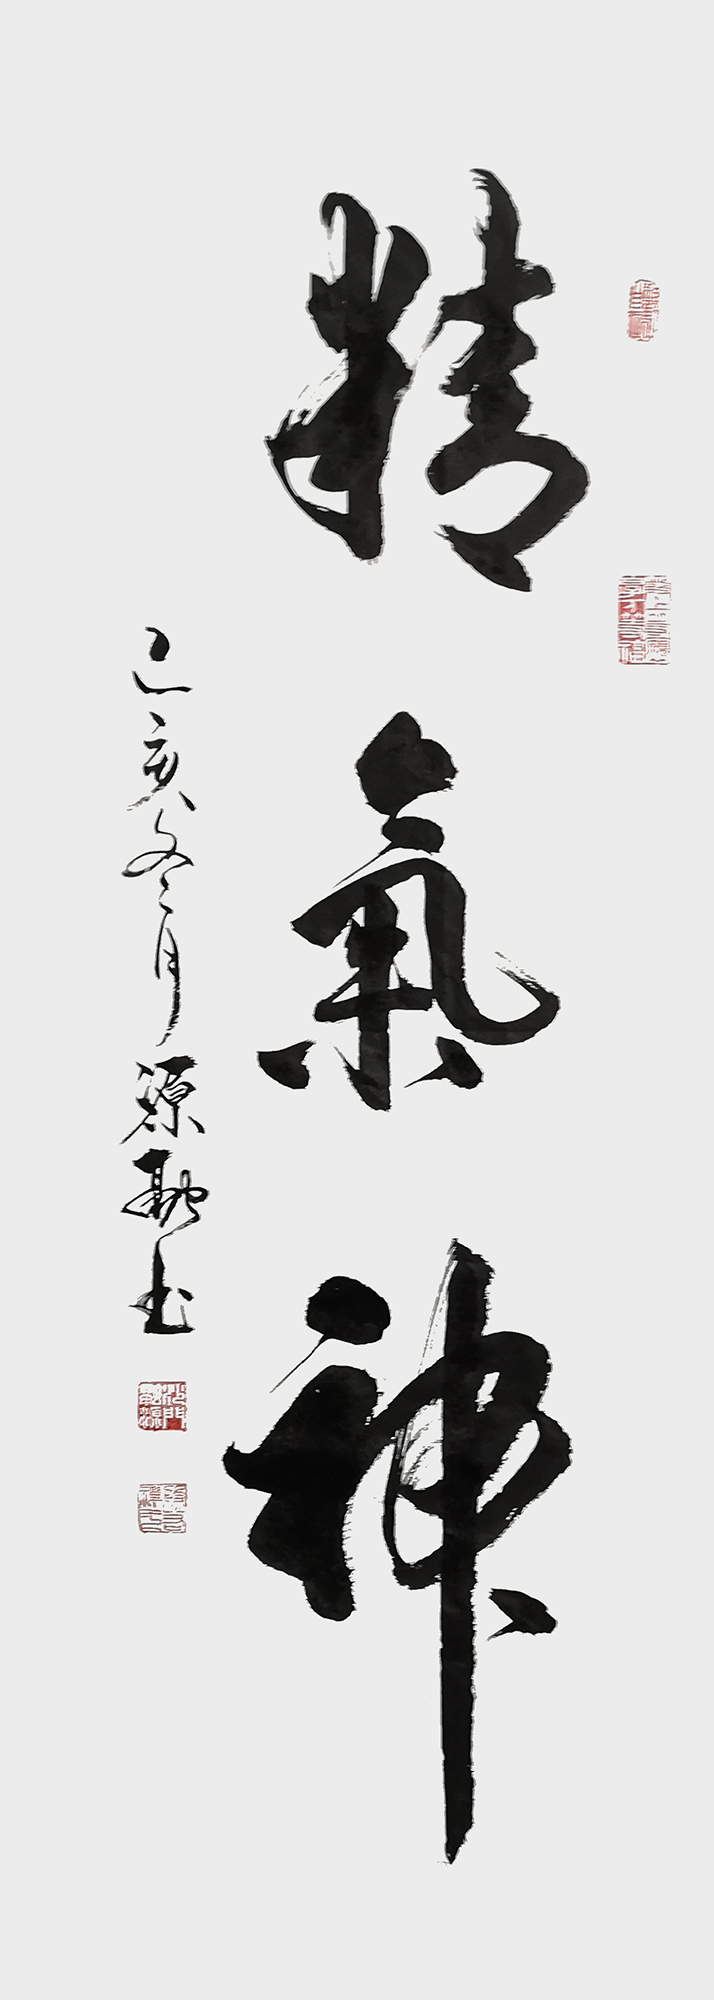 精氣神
己亥冬月源融書